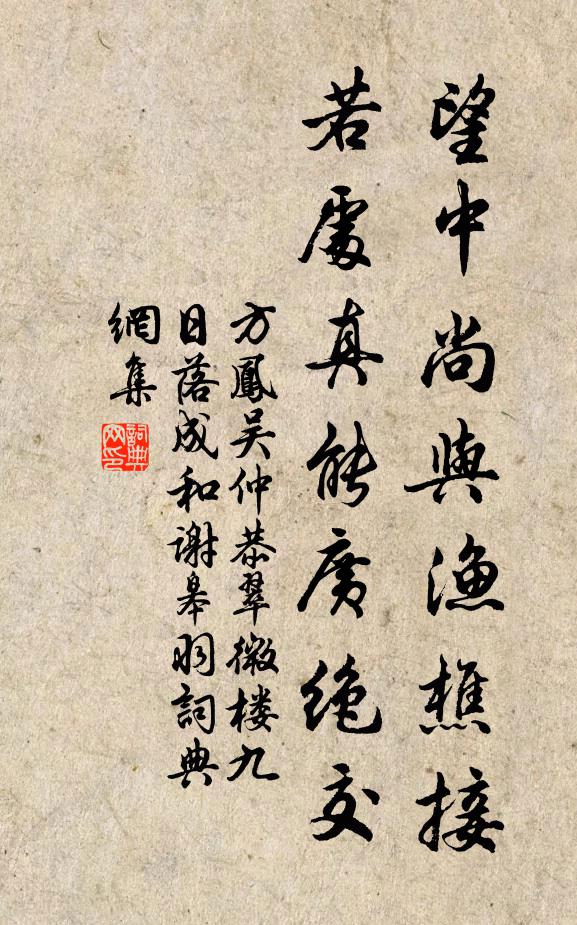 望中尚與漁樵接
若處真能廣絶交
方鳳吴仲恭翠微楼九
日落成和谢皋羽詞典
網集
詞典
网印